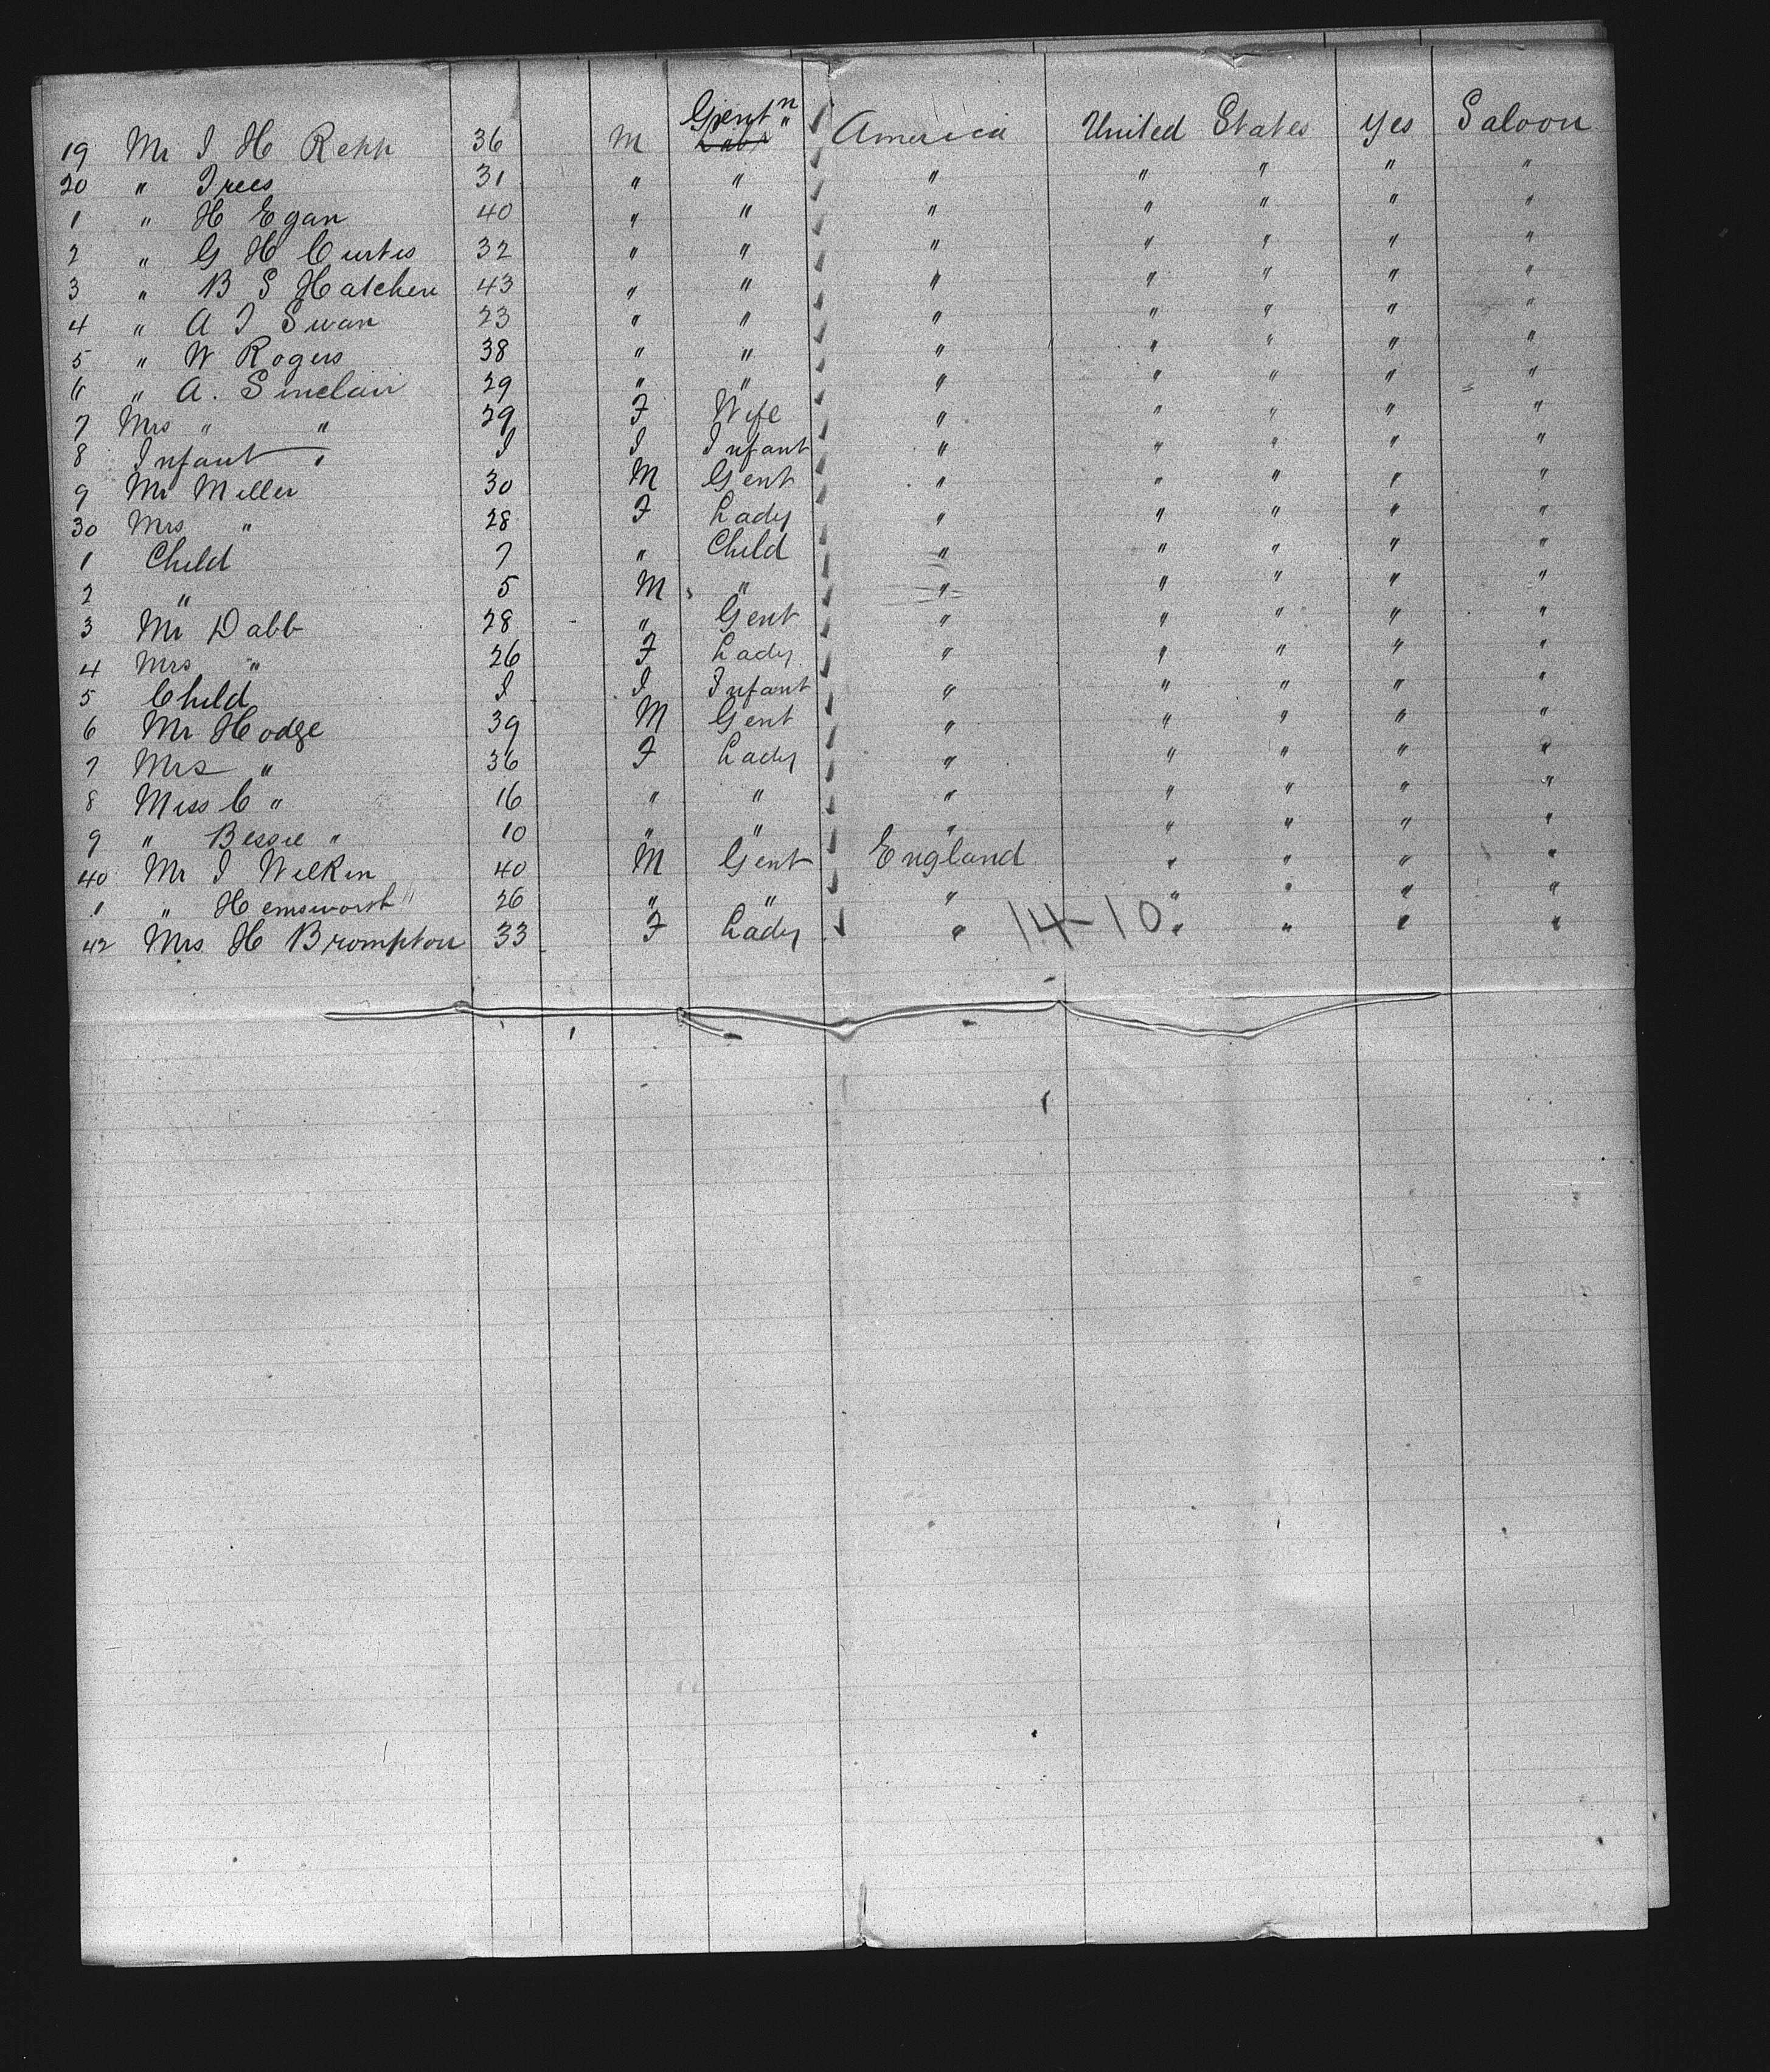 19 Mr I H Repp 36 M Gent" Lab America United States Yes Saloon
20 " Trees 31 " " " " " " "
1 " H Egan 40 " " " " " " "
2 " G H Curtis 32 " " " " " " "
3 " B S Hatcher 43 " " " " " " "
4 " A I Swan 23 " " " " " " "
5 " W Rogers 38 " " " " " " "
6 " A. Sinclair 29 " " " " " " "
7 Mrs " " 29 F Wife " " " " "
8 Infant " I I Infant " " " " "
9 Mr Miller 30 M Gent " " " " "
30 Mrs " 28 F Lady " " " " "
1 Child 7 " Child " " " " "
2 " 5 M " " " " " "
3 Mr Dabb 28 " Gent " " " " "
4 Mrs " 26 F Lady " " " " "
5 Child I I Infant " " " " "
6 Mr Hodge 39 M Gent " " " " "
7 Mrs " 36 F Lady " " " " "
8 Miss C " 16 " " " " " " "
9 " Bessie " 10 " " " " " " "
40 Mr I Wilkin 40 M Gent England " " " "
1 " Hemsworth 26 " " " " " " "
42 Mrs H Brompton 33 F Lady " 14-10 " " " "